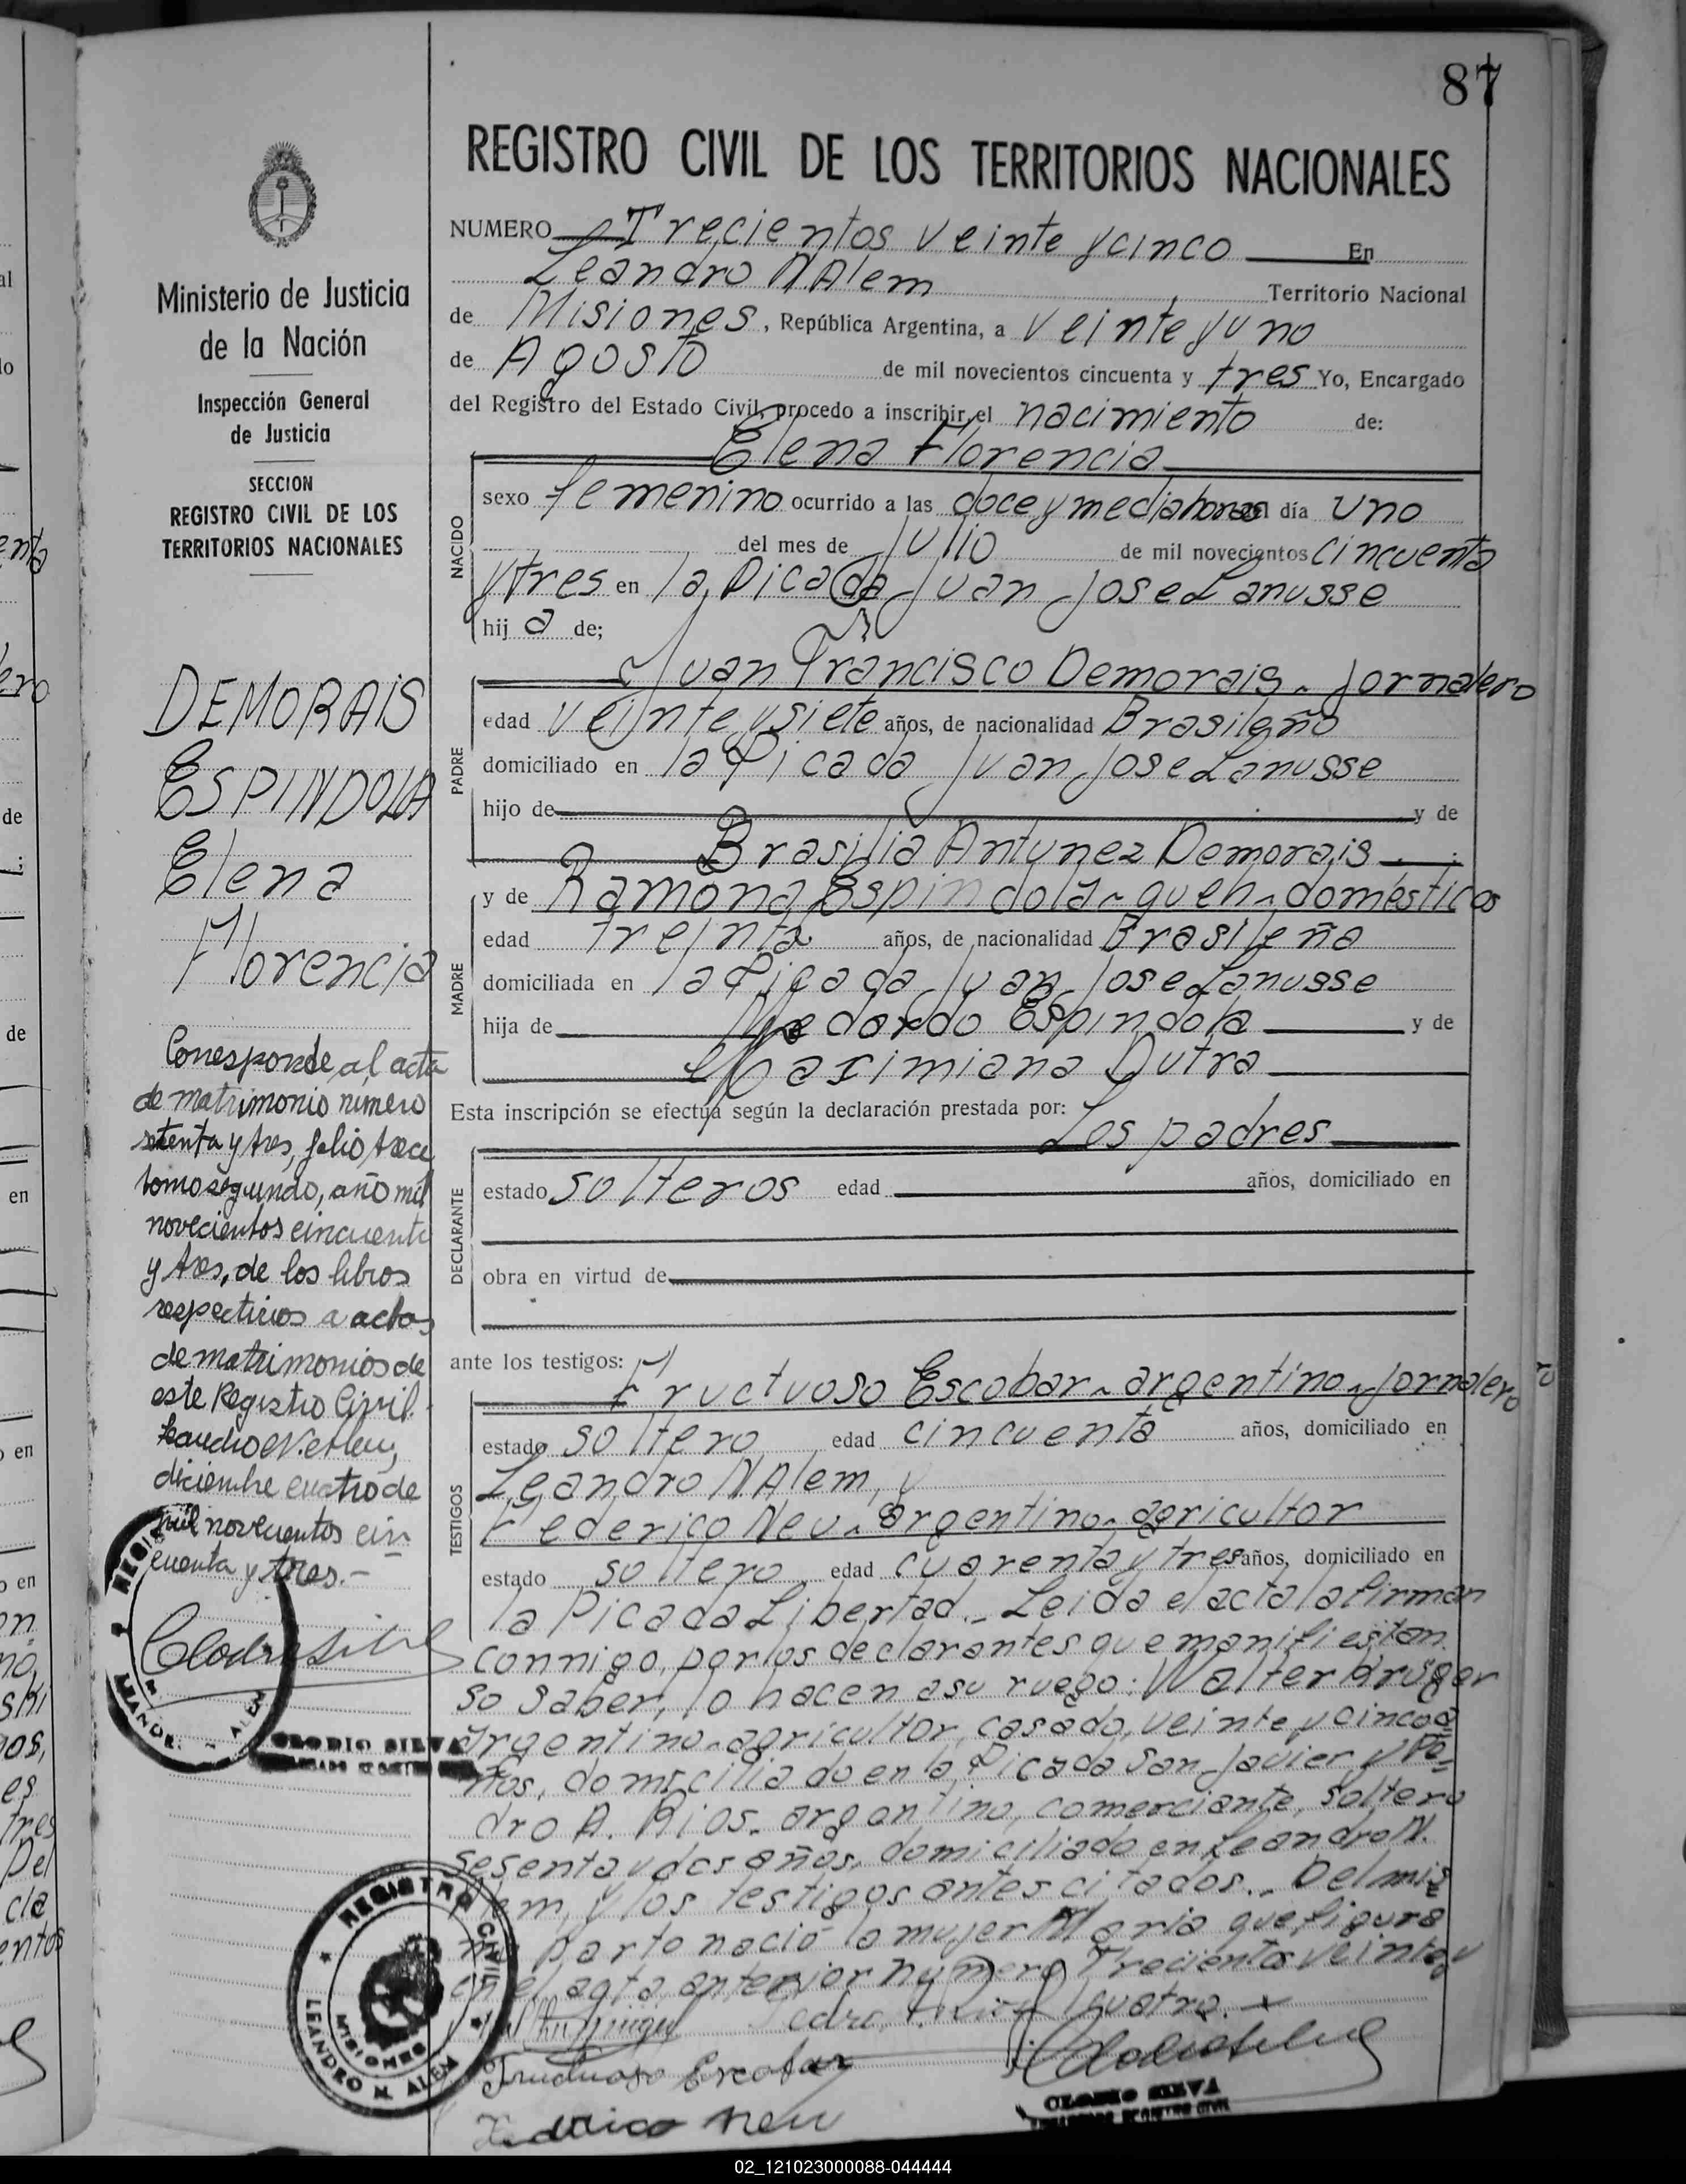 87
REGISTRO CIVIL DE LOS TERRITORIOS NACIONALES
NUMERO Trecientos veinte y cinco En
Leandro N Alem Territorio Nacional
de Misiones, República Argentina, a veinte y uno
de Agosto de mil novecientos cincuenta y tres Yo, Encargado
del Registro del Estado Civil, procedo a inscribir el nacimiento de:
Elena Florencia
NACIDO
sexo femenino ocurrido a las doce y media horas día uno
del mes de Julio de mil novecientos cincuenta
y tres en la Picada Juan Jose Lanusse
hij a de;
Juan Francisco Demorais - Jornalero
PADRE
edad veinte y siete años, de nacionalidad Brasileño
domiciliado en la Picada Juan Jose Lanusse
hijo de y de
Brasilia Antunez Demorais
y de Ramona Espindola - queh - domésticos
MADRE
edad treinta años, de nacionalidad Brasileña
domiciliada en la Picada Juan Jose Lanusse
hija de Medardo Espindola y de
Maximiana Dutra
Esta inscripción se efectúa según la declaración prestada por:
Los padres
DECLARANTE
estado solteros edad años, domiciliado en
obra en virtud de
ante los testigos:
Fructuoso Escobar - argentino - Jornalero
TESTIGOS
estado soltero edad cincuenta años, domiciliado en
Leandro N. Alem, y
Federico Neu - argentino - agricultor
estado soltero edad cuarenta y tres años, domiciliado en
la Picada Libertad. - Leida el acta la firman
conmigo, por los declarantes que manifiestan
so saber, lo hacen a su ruego: Walter Krüger
argentino - agricultor, casado, veinte y cinco a
ños, domiciliado en la Picada San Javier y Pe-
dro A. Rios - argentino, comerciante, soltero
sesenta y dos años, domiciliado en Leandro N.
Alem, y los testigos antes citados. - Del mis
mo parto nació la mujer Maria que figura
en el acta anterior número Trecientos veinte y
cuatro. -
Pedro A. Rios
Fructuoso Escobar
Federico Neu
CLODIO SILVA
Ministerio de Justicia
de la Nación
Inspección General
de Justicia
SECCION
REGISTRO CIVIL DE LOS
TERRITORIOS NACIONALES
DEMORAIS
ESPINDOLA
Elena
Florencia
Corresponde al acta
de matrimonio número
setenta y tres, folio trece
tomo segundo, año mil
novecientos cincuenta
y tres, de los libros
respectivos a actas
de matrimonios de
este Registro Civil.
Leandro N. Alem,
diciembre cuatro de
mil novecientos cin
cuenta y tres. -
CLODIO SILVA
REGISTRO CIVIL
MISIONES
LEANDRO N. ALEM
02_121023000088-044444